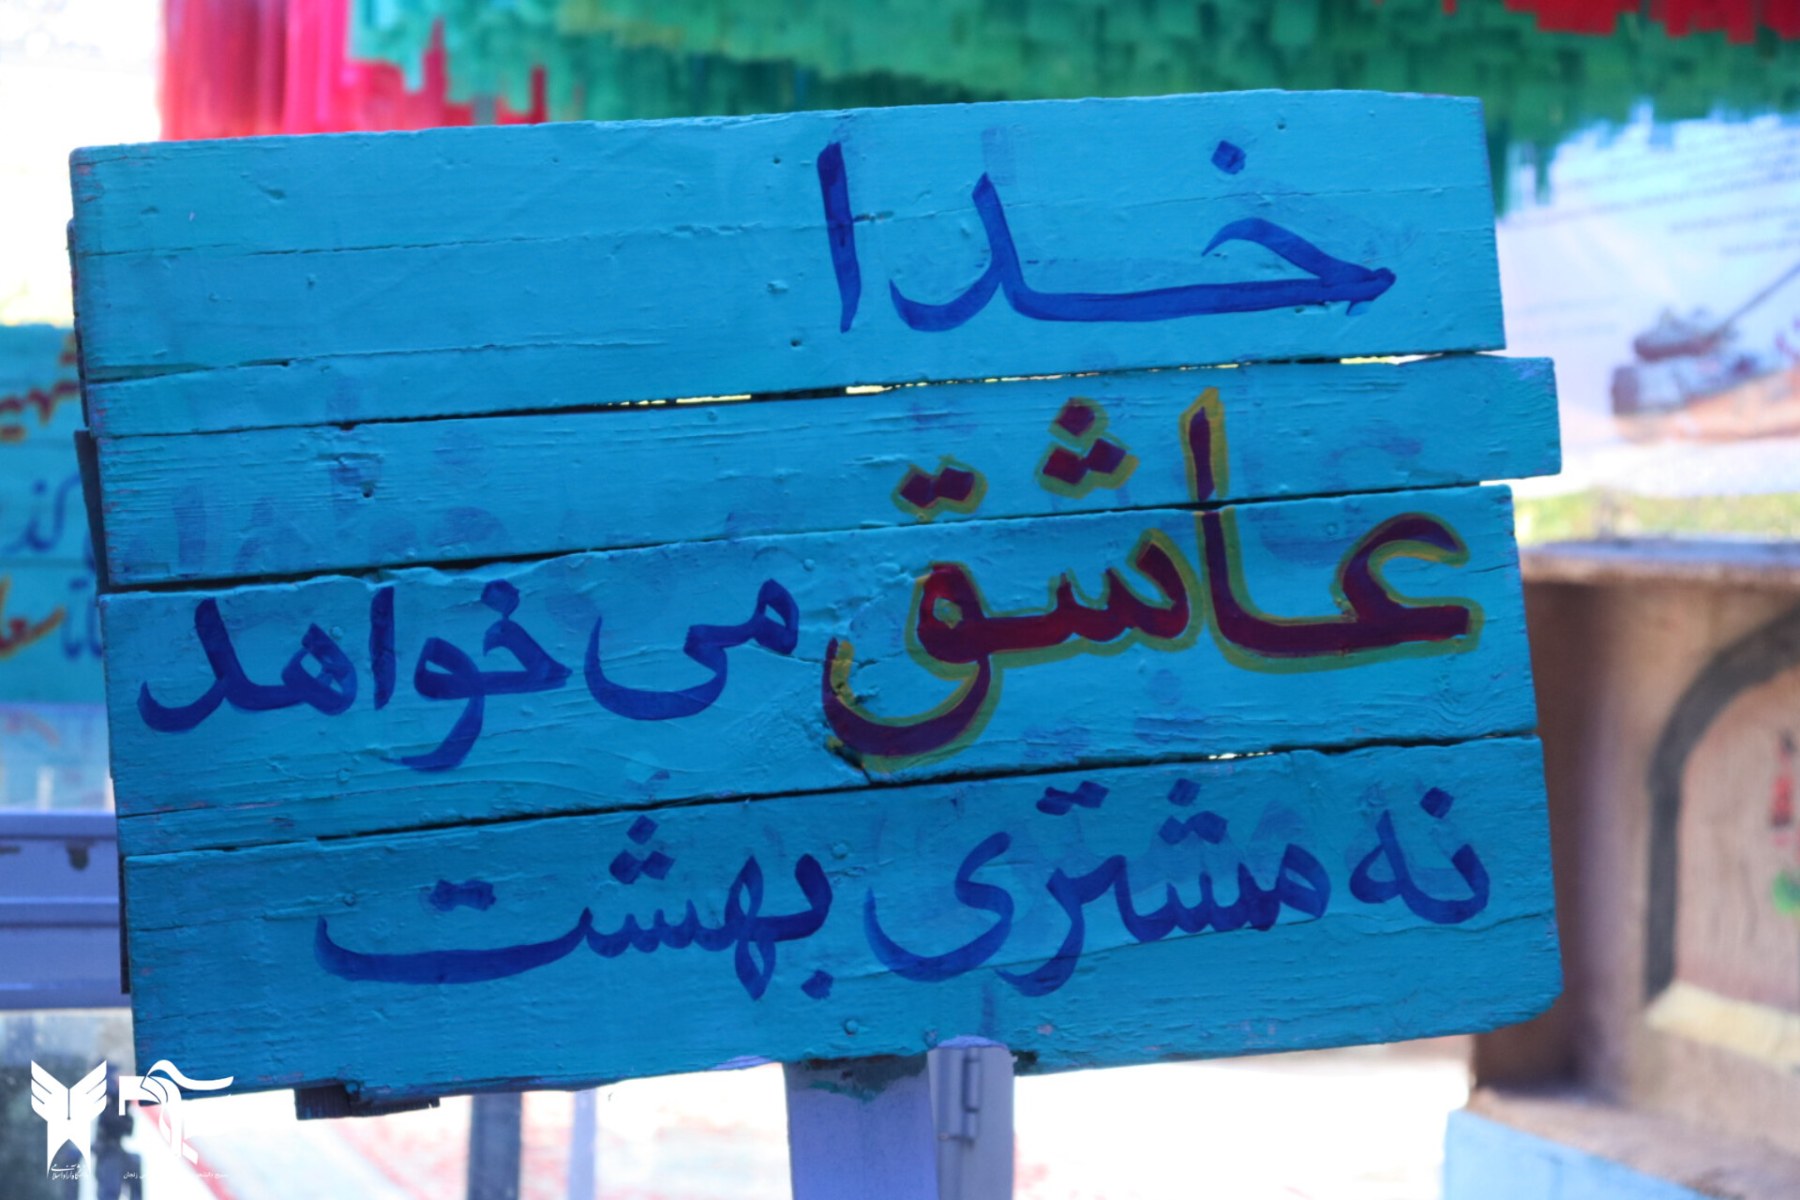 خدا
عاشق می‌خواهد
نه مشتری بهشت